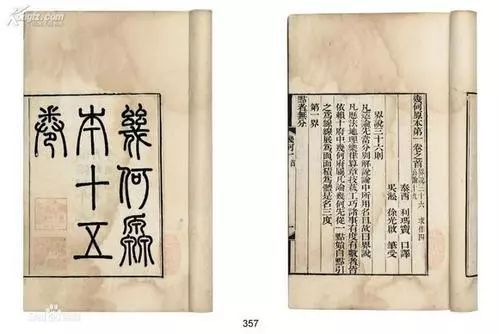 Kongfz.com
幾何原
本十五
卷
幾何原本第一卷之首 界說三十六 求作四
公論十九
泰西 利瑪竇 口譯
吳淞 徐光啟 筆受
界說三十六則
凡造論先當分別解說論中所用名目故曰界說
凡歷法地理樂律算章技藝工巧諸事有度有數者皆
依賴十府中幾何府屬凡論幾何先從一點始自點引
之爲線線展爲面面積爲體是名三度
第一界
點者無分
357